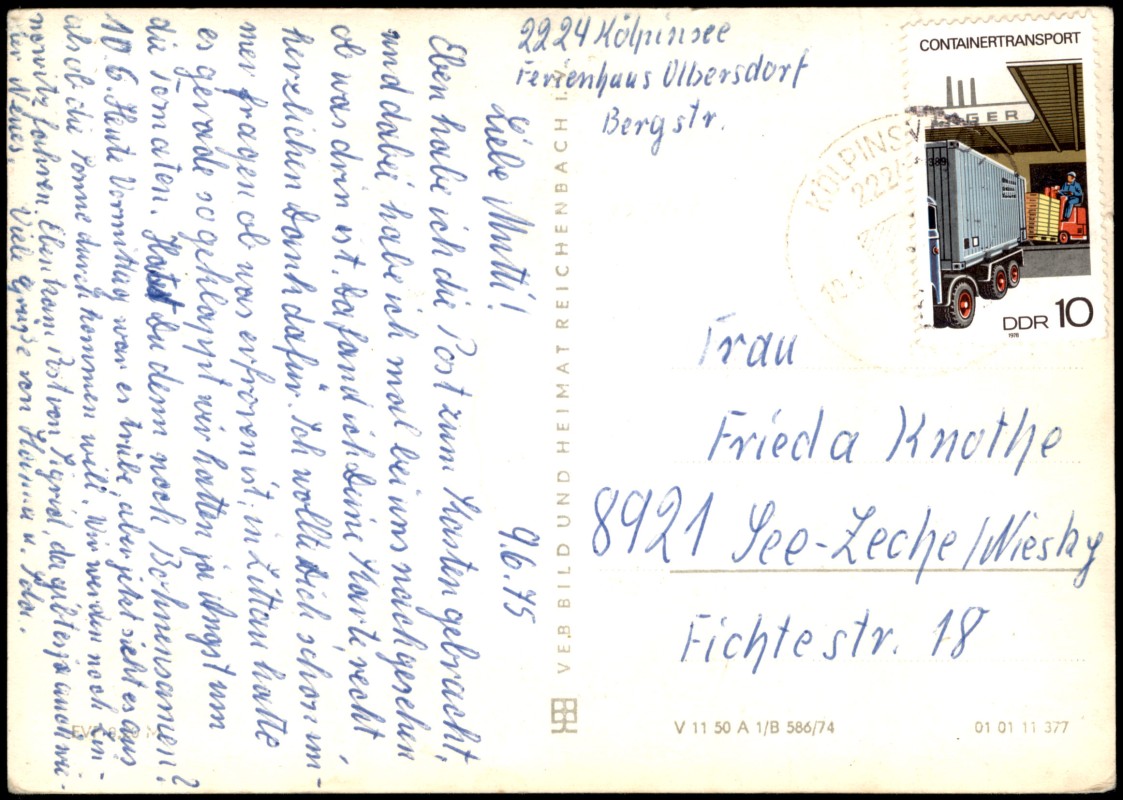 2224 Kölpinsee
Ferienhaus Olbersdorf
Bergstr.
9.6.75
Liebe Mutti!
Eben habe ich die Post zum Kasten gebracht,
und dabei habe ich mal bei uns nachgesehen
ob was drin ist. Da fand ich Deine Karte, recht
herzlichen Dank dafür. Ich wollt Dich schon im-
mer fragen ob was erfroren ist, in Zittau hatte
es gerade so geklappt wir hatten ja Angst um
die Tomaten. Hast Du denn noch Bohnensamen?
10.6. Heute Vormittag war es trübe, aber jetzt sieht es aus
als ob die Sonne durch kommen will. Wir werden noch Zin-
nowitz fahren. Eben kam Post von Sigrid, da gibt es ja auch wie-
der Neues. Viele Grüße von
VEB BILD UND HEIMAT REICHENBACH I.
EVP
CONTAINERTRANSPORT
LAGER
389
DDR 10
1978
KÖLPINS
222
Frau
Frieda Knothe
8921 See-Zeche/Niesky
Fichtestr. 18
V 11 50 A 1/B 586/74
01 01 11 377